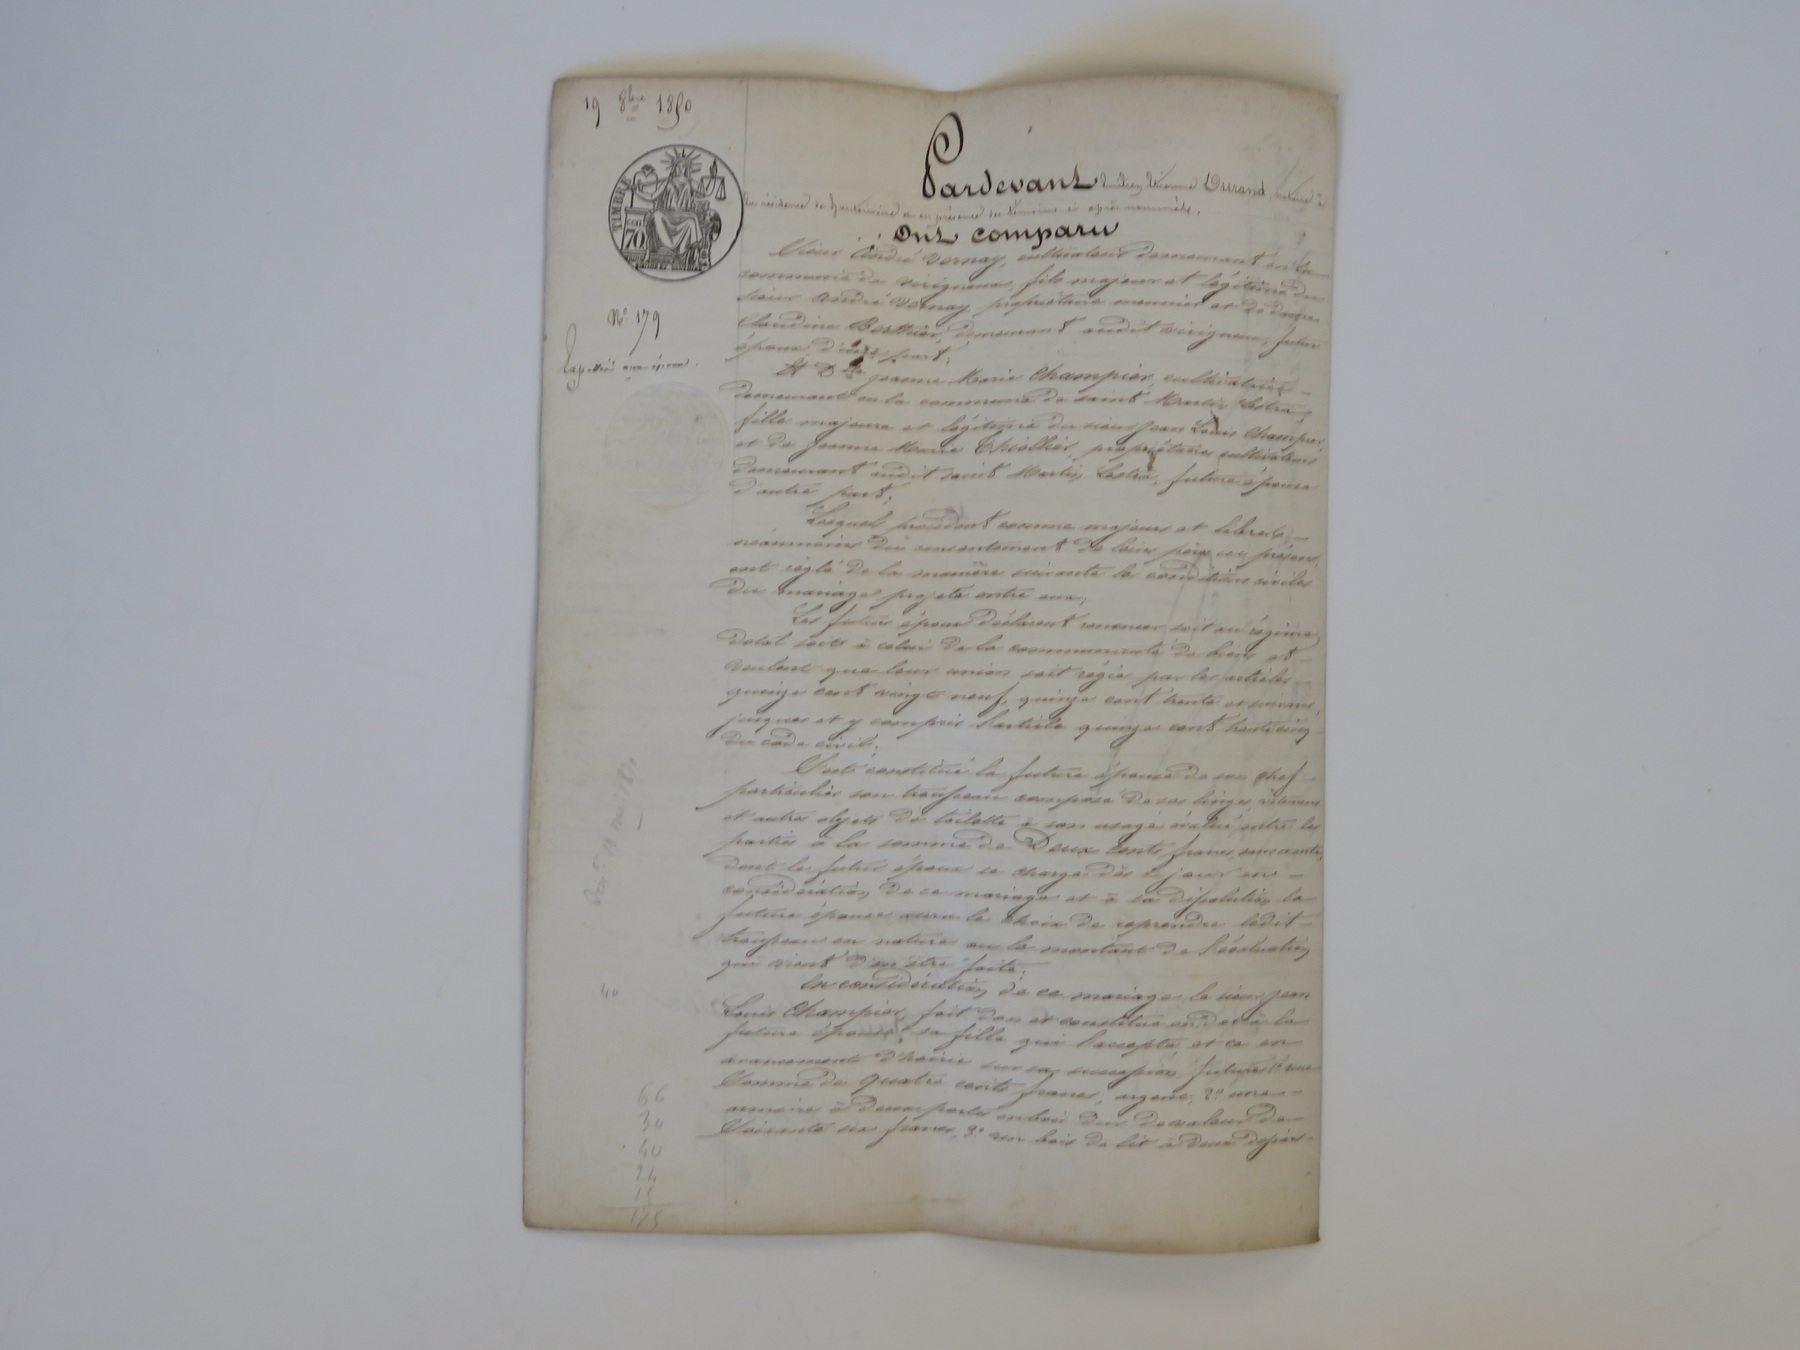 19 8bre 1850
TIMBRE
70
Pardevant Durand, notaire à
la résidence de en présence des témoins ci après nommés,
Ont comparu
Sieur André Vernay, cultivateur demeurant en la
commune de virigneux, fils majeur et légitime du
sieur André Vernay, propriétaire meunier et de dame
Claudine Berthier, demeurant audit virigneux, futur
époux d'une part,
N° 179
Expédié aux époux.
Et Dlle jeanne Marie Champier, cultivatrice
demeurant en la commune de saint Martin Lestra,
fille majeure et légitime du sieur Jean Louis Champier
et de Jeanne Marie Thiollier, propriétaires cultivateurs
demeurant audit saint Martin Lestra, future épouse
d'autre part;
Lesquels procédant comme majeurs et libres,
néanmoins du consentement de leurs pères ici présens,
ont réglé de la manière suivante les conditions civiles
du mariage projeté entre eux;
Les futurs époux déclarent renoncer soit au régime
dotal soit à celui de la communauté de biens et
veulent que leur union soit régie par les articles
quinze cent vingt neuf, quinze cent trente et suivans,
jusques et y compris l'article quinze cent trente cinq
du code civil;
S'est constitué la future épouse de son chef
particulier son trousseau composé de ses linges, vêtemens
et autres objets de toilette à son usage évalué entre les
parties à la somme de Deux cents francs,
dont le futur époux se charge dès ce jour en
considération de ce mariage et à sa dissolution la
future épouse aura le choix de reprendre ledit
trousseau en nature ou le montant de l'évaluation
qui vient d'en être faite;
En considération de ce mariage le sieur Jean
Louis Champier, fait don et constitue en dot à la
future épouse, sa fille qui l'accepte, et ce en
avancement d'hoirie sur sa succession future 1° une
Somme de quatre cents francs, argent, 2° une
armoire à deux portes en bois dur de valeur de
Soixante six francs, 3° un bois de lit à deux
40
66
30
40
24
15
175